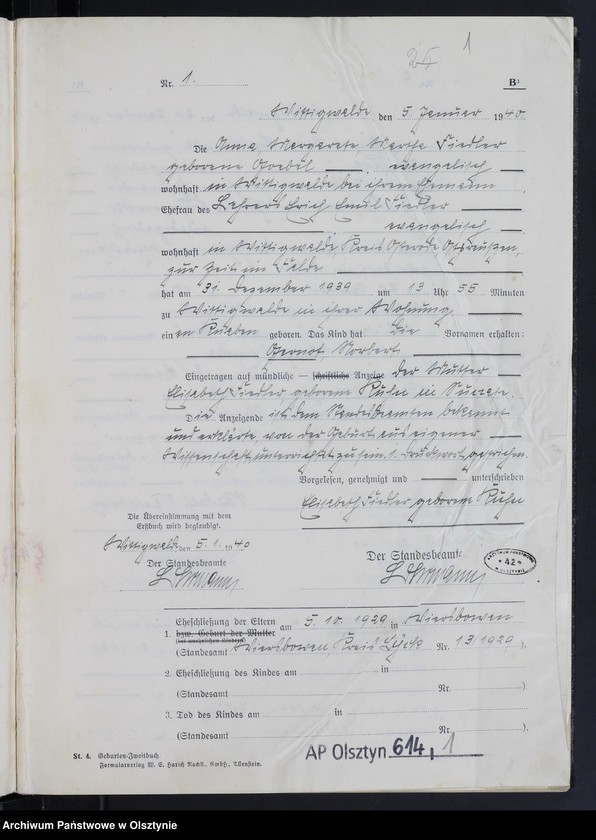 25 1
Nr. 1. B¹
Wittigwalde den 5. Januar 1940
Die Anna Margarete Martha Fiedler
geborene Goebel evangelisch
wohnhaft in Wittigwalde bei ihrem Ehemann
Ehefrau des Lehrers Erich Emil Fiedler
evangelisch
wohnhaft in Wittigwalde Kreis Osterode, Ostpreußen,
zur Zeit im Felde
hat am 31. Dezember 1939 um 13 Uhr 55 Minuten
zu Wittigwalde in ihrer Wohnung
einen Knaben geboren. Das Kind hat die Vornamen erhalten:
Gernot, Norbert
Eingetragen auf mündliche – schriftliche – Anzeige der Mutter
Elisabeth Fiedler geborene Kuhn in
Die Anzeigende ist dem Standesbeamten bekannt
und erklärte, von der Geburt aus eigener
Wissenschaft unterrichtet zu sein. 1 Druckwort gestrichen.
Vorgelesen, genehmigt und unterschrieben
Elisabeth Fiedler, geborene Kuhn
Die Übereinstimmung mit dem
Erstbuch wird beglaubigt.
Wittigwalde, den 5. 1. 1940
Der Standesbeamte Der Standesbeamte
ARCHIWUM PAŃSTWOWE
* 42 *
w OLSZTYNIE
Eheschließung der Eltern am 5. 10. 1929 in Wiersbowen
1. bzw. Geburt der Mutter
(bei unehelichen Kindern)
(Standesamt Wiersbowen, Kreis Lyck Nr. 13/1929 ).
2. Eheschließung des Kindes am in
(Standesamt Nr. ).
3. Tod des Kindes am in
(Standesamt Nr. ).
St. 4. Geburten-Zweitbuch.
Formularverlag W. E. Harich Nachfl., GmbH., Allenstein.
AP Olsztyn 614, 1
Archiwum Państwowe w Olsztynie